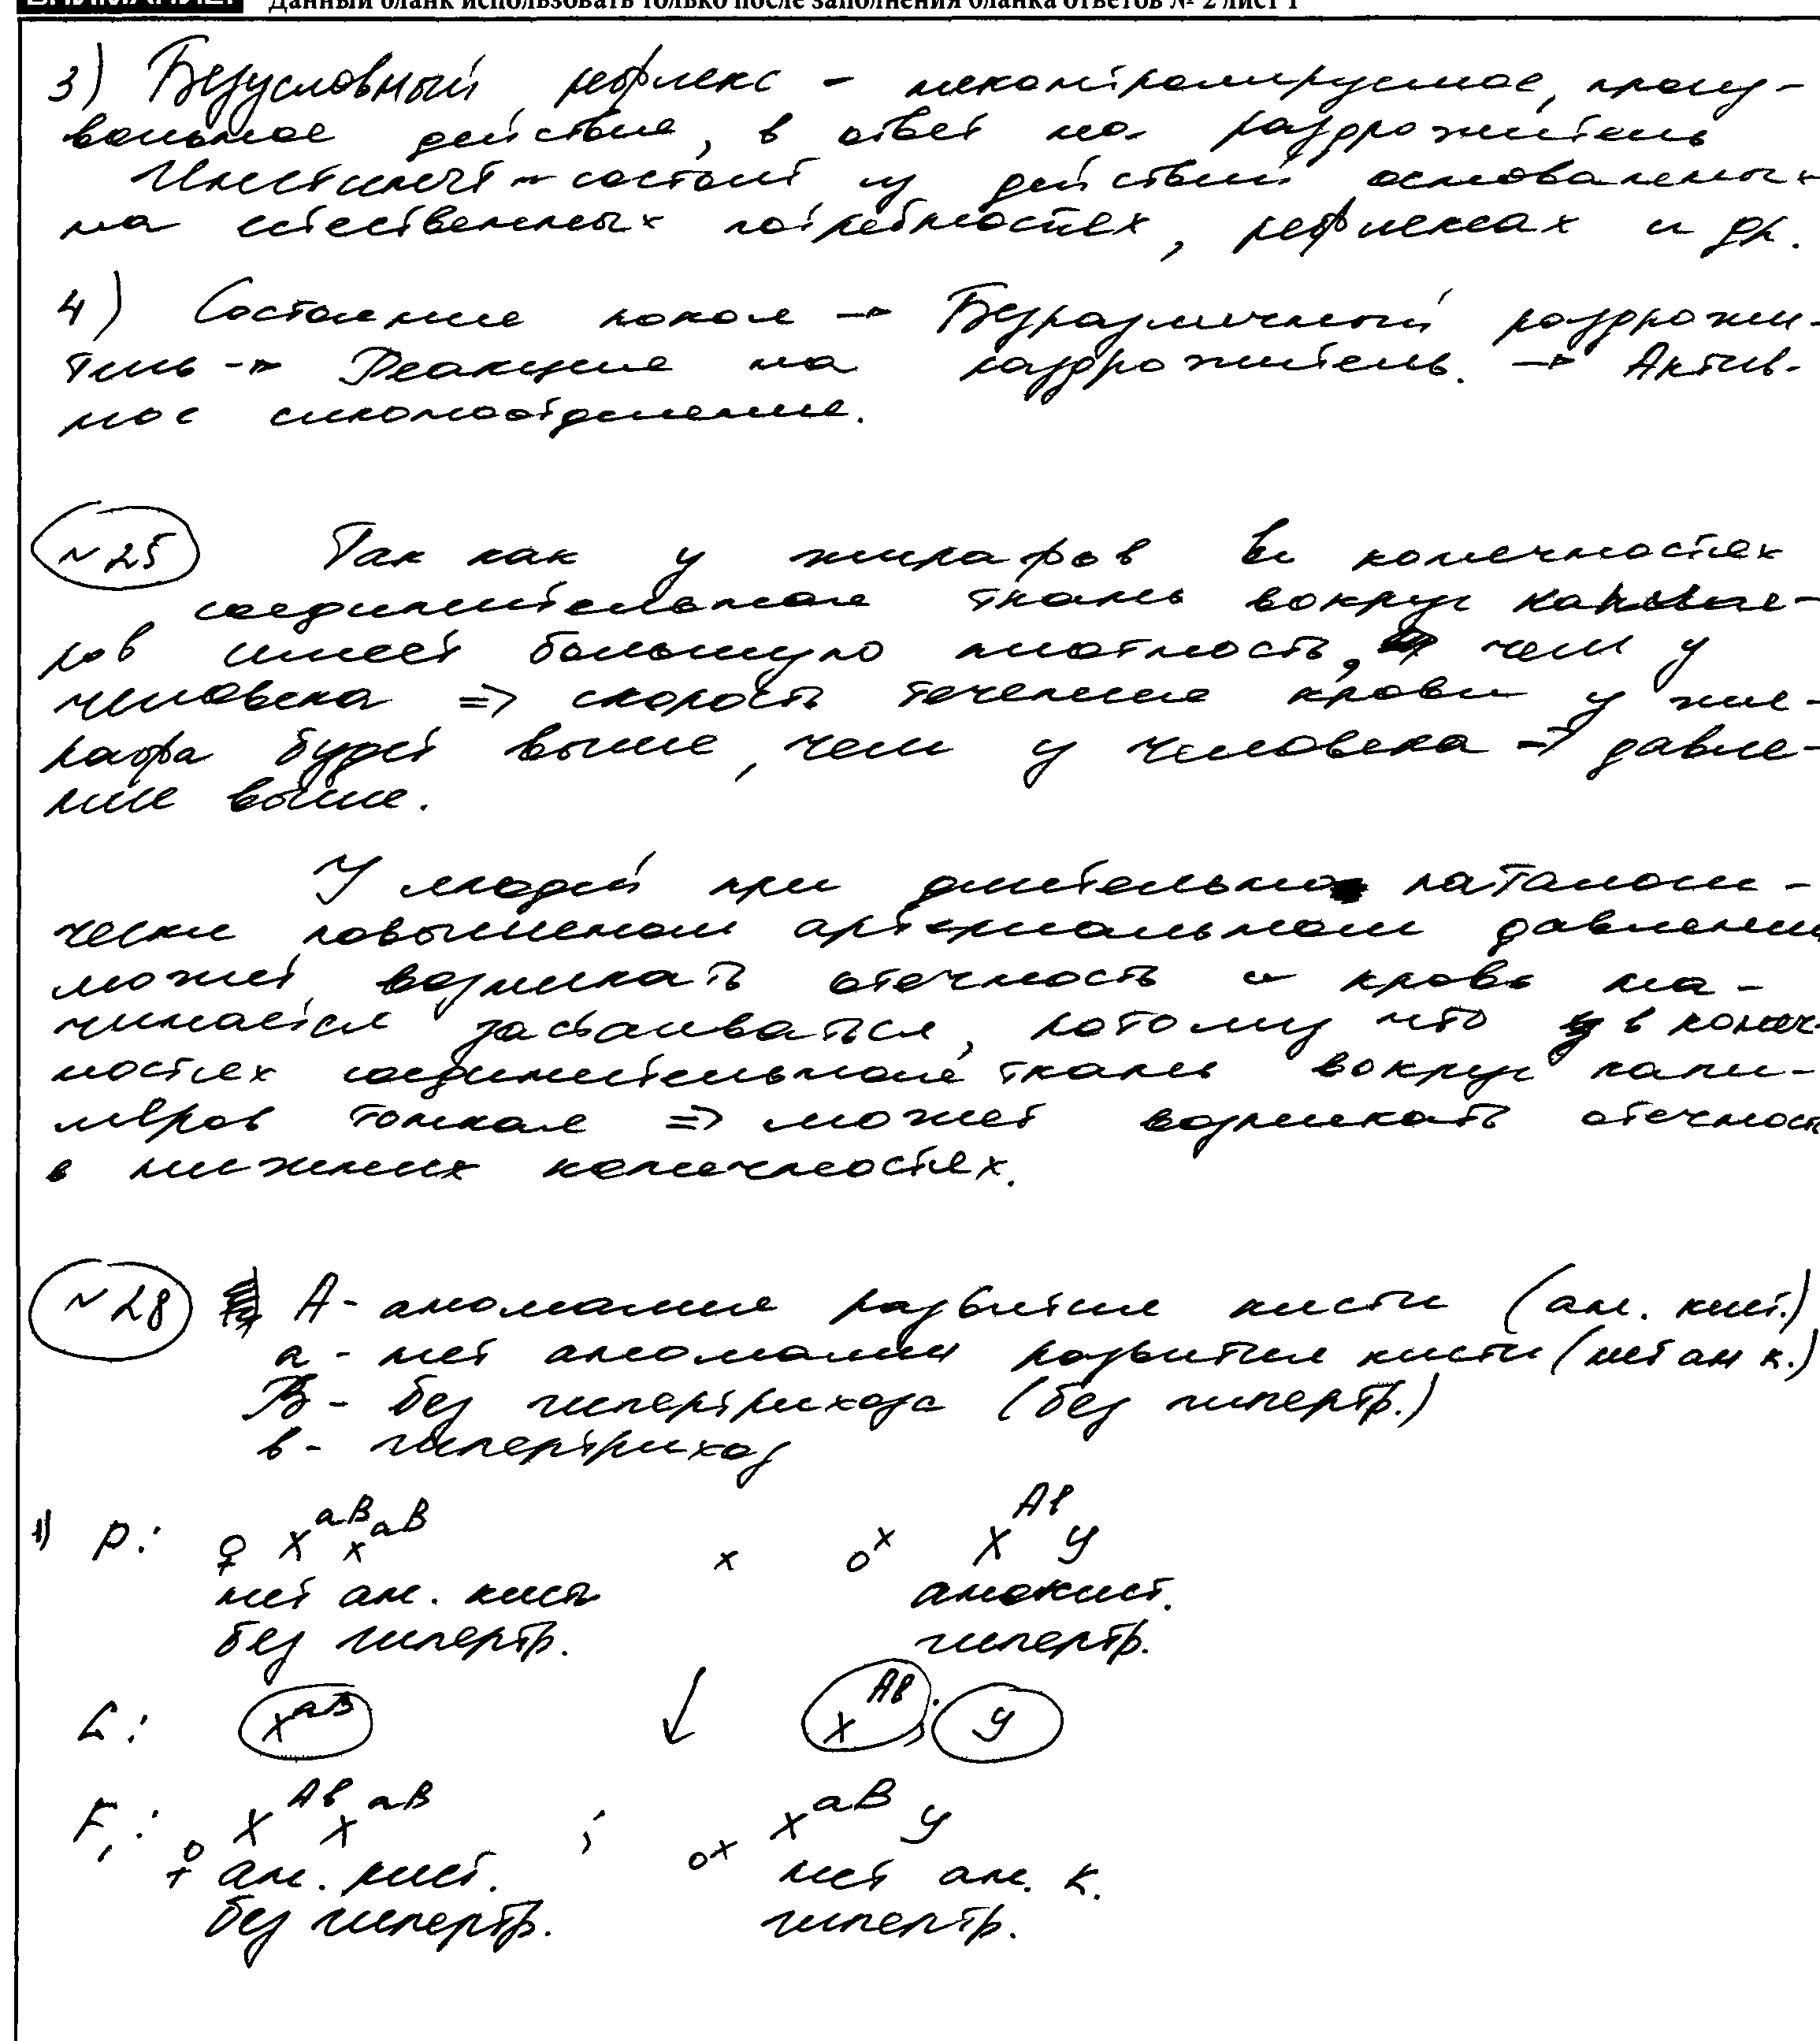 ВНИМАНИЕ! Данный бланк использовать только после заполнения бланка ответов № 2 лист 1
3) Безусловный рефлекс - неконтролируемое, произ-
вольное действие, в ответ на раздрожитель
Инстинкт - состоит из действий основаленных
на естественных потребностях, рефлексах и др.
4) Состояние покоя → Безразличный раздрожи-
тель → Реакция на раздрожитель. → Актив-
ное слюноотделение.
№25 Так как у жирафов в конечностях
соединительная ткань вокруг капиля-
ров имеет большую плотность, чем у
человека => скорость течения крови у жи-
рафа будет выше, чем у человека => давле-
ние выше.
У людей при длительно патологи-
чески повышеном артериальном давлении
может возникать отечность и кровь на-
чинается застаиваться, потому что в конеч-
ностях соединительная ткань вокруг капи-
ляров тонкая => может возникать отечность
в нижних конечностях.
№28 А - аномалия развития кисти (ан. кист.)
а - нет аномалии развития кисти (нет ан к.)
В - без гипертрихоза (без гипертр.)
в - гипертрихоз
1) P: ♀ X^aB X^aB x ♂ X^Aв У
нет ан. кист анокист.
без гипертр. гипертр.
G: X^aB ↓ X^Aв ; У
F₁: ♀ X^Aв X^aB ; ♂ X^aB У
ан. кист. нет ан. к.
без гипертр. гипертр.